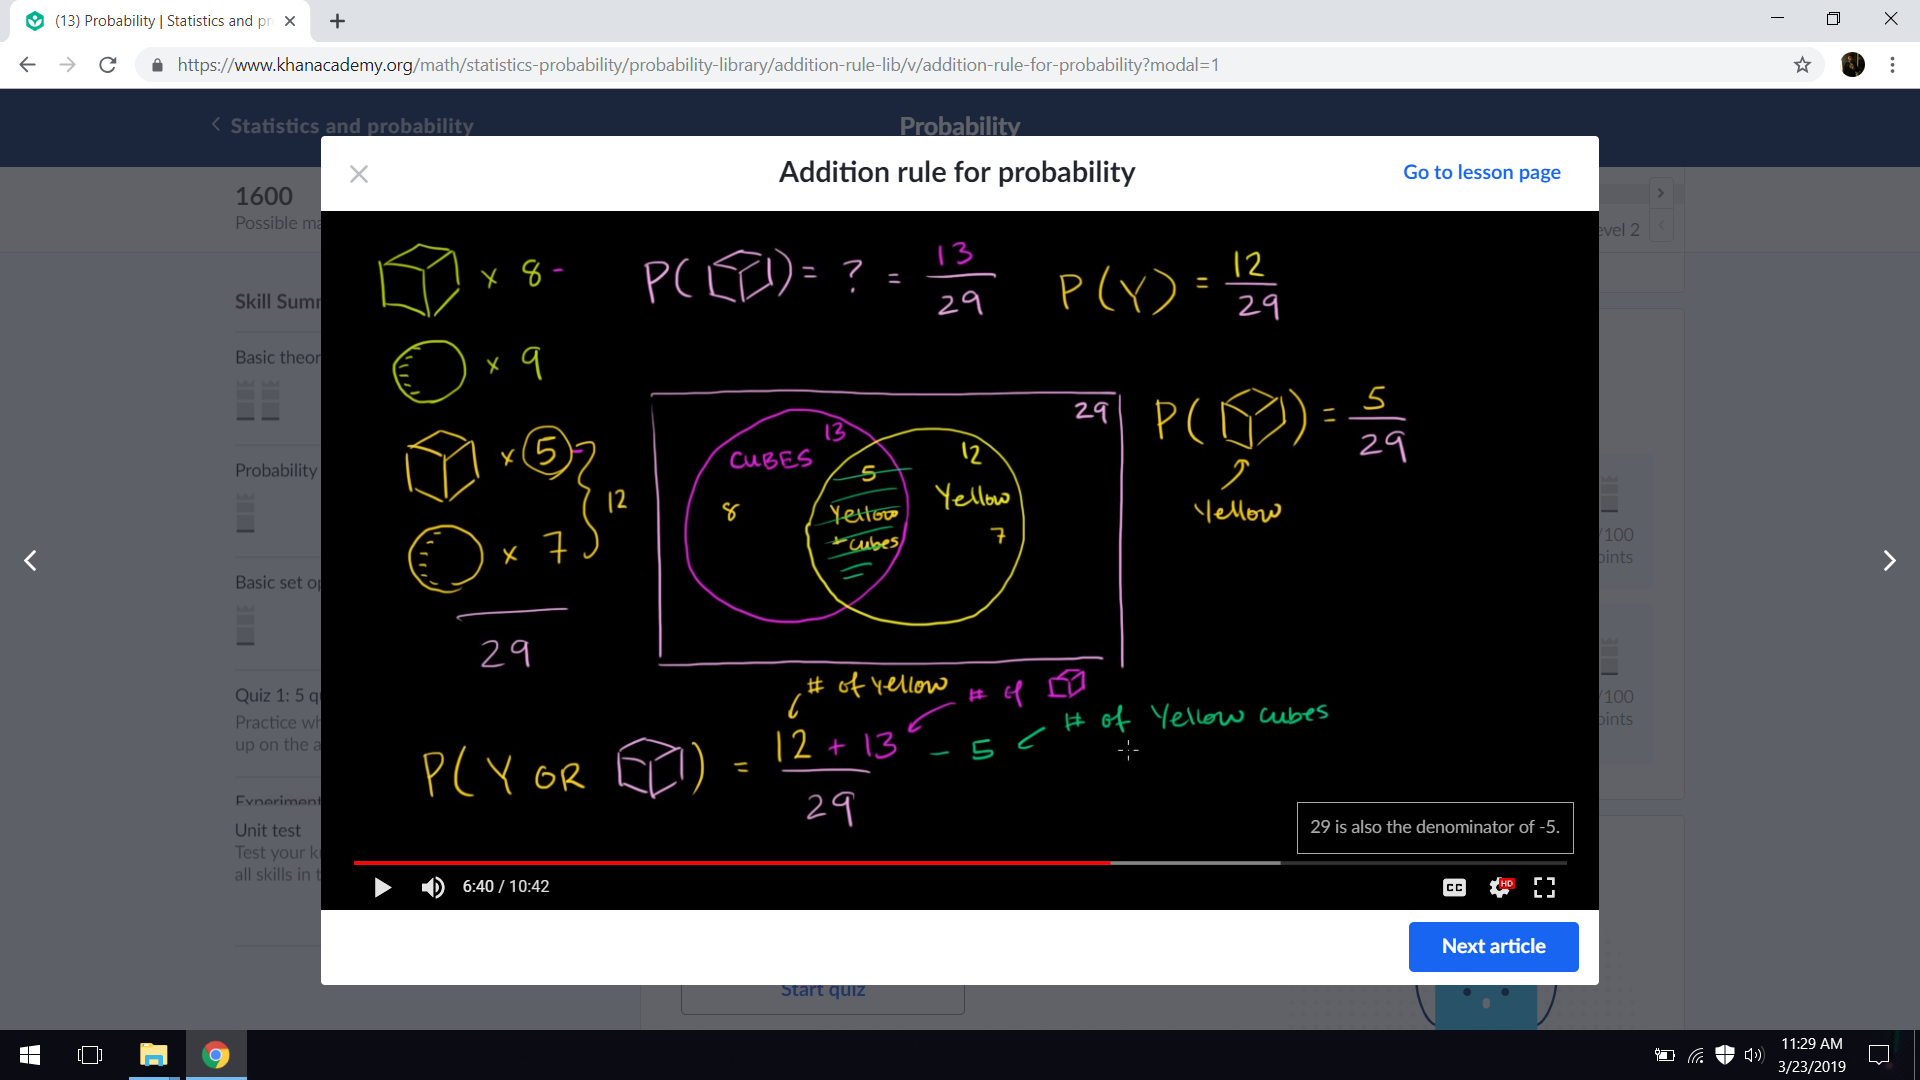 (13) Probability | Statistics and pr
https://www.khanacademy.org/math/statistics-probability/probability-library/addition-rule-lib/v/addition-rule-for-probability?modal=1
Statistics and probability
Probability
1600
Possible ma
evel 2
Skill Summ
Basic theor
Probability
Basic set op
Quiz 1: 5 qu
Practice wh
up on the a
Experiment
Unit test
Test your k
all skills in t
/100
oints
/100
oints
Addition rule for probability
Go to lesson page
x 8 -
P( ) = ? = 13
29
P(Y) = 12
29
x 9
x 5
12
x 7
29
29
CUBES
13
8
5
Yellow
+ cubes
12
Yellow
7
P( ) = 5
29
Yellow
# of Yellow
# of
# of Yellow cubes
P(Y OR ) = 12 + 13 - 5
29
29 is also the denominator of -5.
6:40 / 10:42
CC
HD
Next article
Start quiz
11:29 AM
3/23/2019